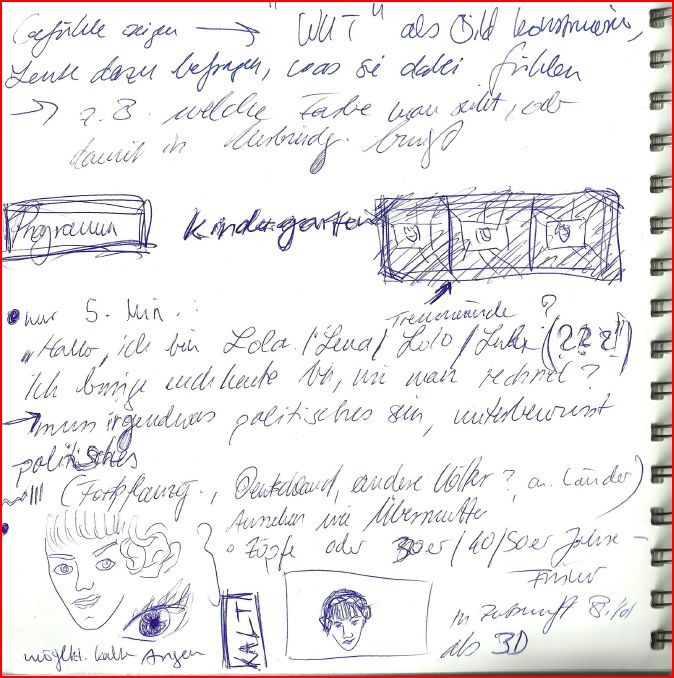 Gefühle zeigen → "WUT" als Bild konstruieren,
Leute dazu befragen, was sie dabei fühlen
→ z.B. welche Farbe man sieht, oder
damit in Verbindg. bringt
Programm Kindergarten
Trennwände ?
• nur 5. Min.:
"Hallo, ich bin Lola / Lena / Lolo / (???")
Ich bringe euch heute bei, wie man rechnet?
→ muss irgendwas politisches sein, unterbewusst
politisches
(Fortpflanzg., Deutschland, andere Völker?, an. Länder)
Aussehen wie Übermutter
• Zöpfe oder 30er/40/50er Jahre-
Frisur
KALT
in Zukunft Bild
als 3D
möglst. kalte Augen